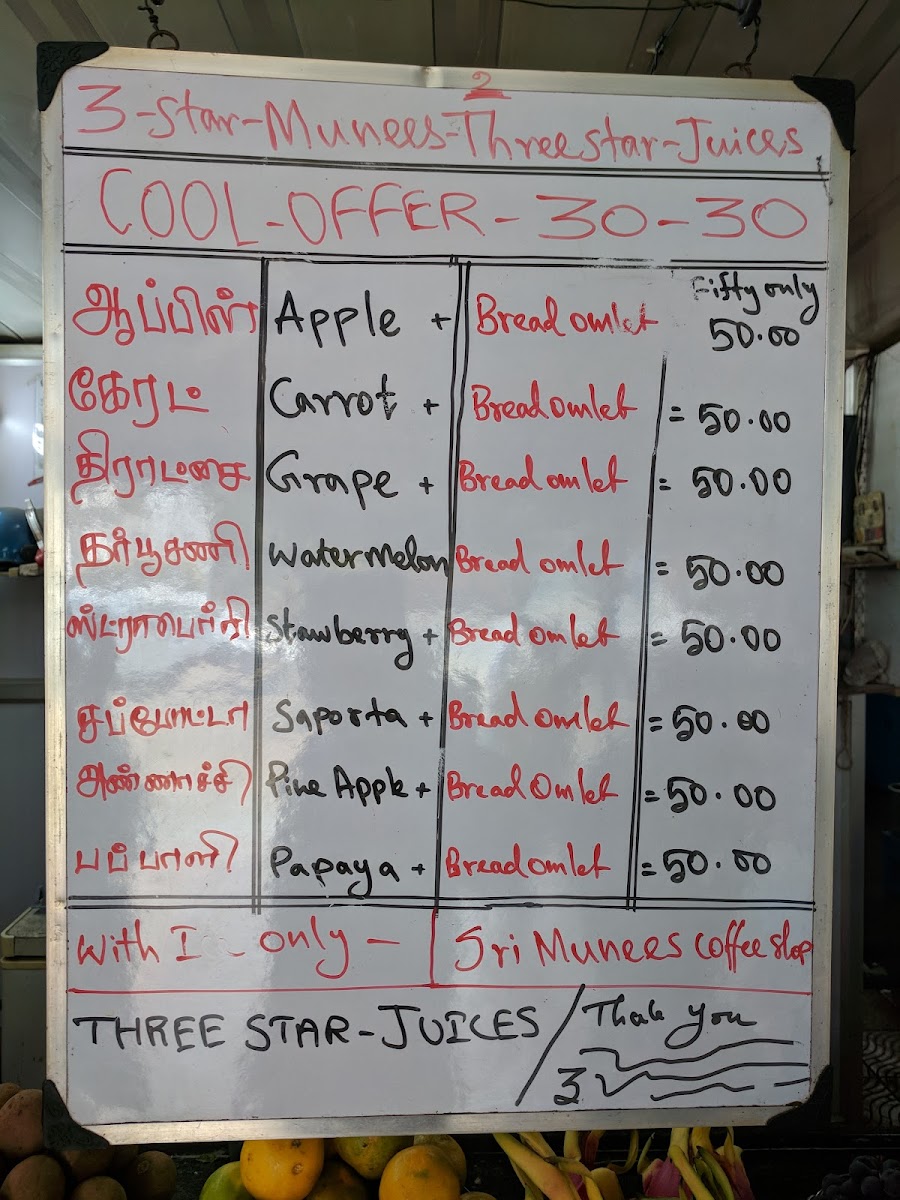 2
3-Star-Munees-Threestar-Juices
COOL-OFFER-30-30
Fifty only
ஆப்பிள் Apple + Bread omlet 50.00
கேரட் Carrot + Bread omlet = 50.00
திராட்சை Grape + Bread omlet = 50.00
தர்பூசணி Watermelon Bread omlet = 50.00
ஸ்ட்ராபெர்ரி Stawberry + Bread omlet = 50.00
சப்போட்டா Saporta + Bread omlet = 50.00
அண்ணாச்சி Pine Apple + Bread Omlet = 50.00
பப்பாளி Papaya + Bread omlet = 50.00
With I - only - Sri Munees Coffee shop
THREE STAR-JUICES / Thank you
3